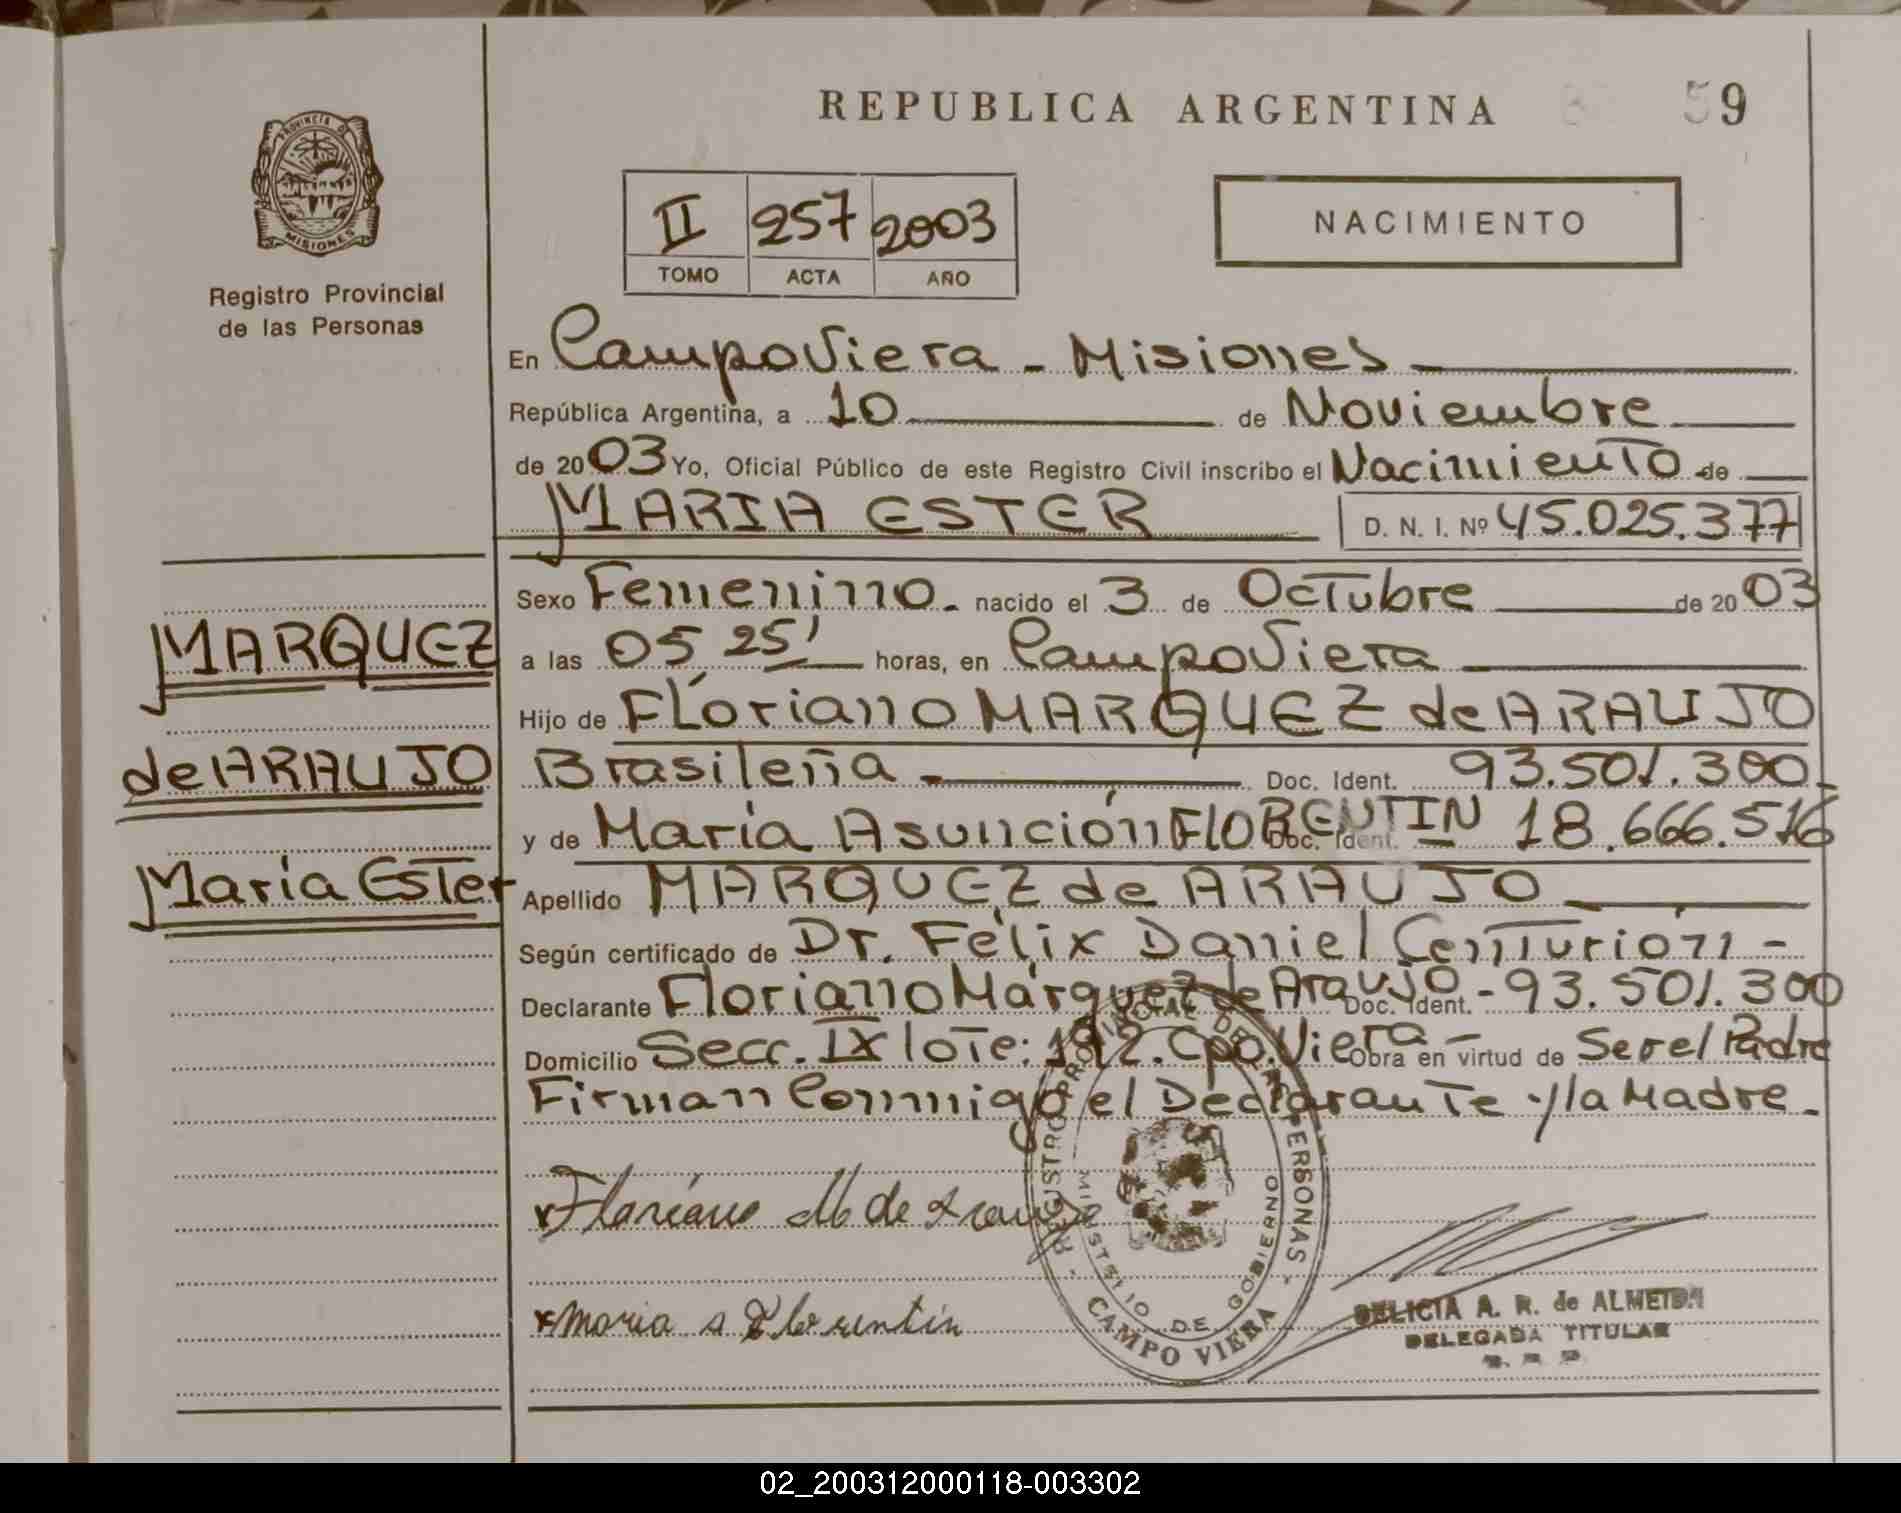 REPUBLICA ARGENTINA 59
PROVINCIA DE
MISIONES
Registro Provincial
de las Personas
II 257 2003
TOMO ACTA AÑO
NACIMIENTO
En CampoViera - Misiones
República Argentina, a 10 de Noviembre
de 2003 Yo, Oficial Público de este Registro Civil inscribo el Nacimiento de
MARIA ESTER D. N. I. Nº 45.025.377
Sexo Femenino. nacido el 3 de Octubre de 2003
a las 05 25' horas, en CampoViera
Hijo de Floriano MARQUEZ de ARAUJO
Brasileña - Doc. Ident. 93.501.300
y de María Asunción FLORENTIN Doc. Ident. 18.666.516
Apellido MARQUEZ de ARAUJO
Según certificado de Dr. Félix Daniel Centurión -
Declarante Floriano Márquez de Araujo Doc. Ident. - 93.501.300
Domicilio Secc. IX lote: 192. Cpo. Viera - Obra en virtud de Ser el Padre
Firman Conmigo el Declarante y la Madre.
MARQUEZ
de ARAUJO
María Ester
Floriano M de Araujo
Maria A Florentin
REGISTRO PROVINCIAL DE LAS PERSONAS - CAMPO VIERA -
MINISTERIO DE GOBIERNO
DELICIA A. R. de ALMEIDA
DELEGADA TITULAR
02_200312000118-003302